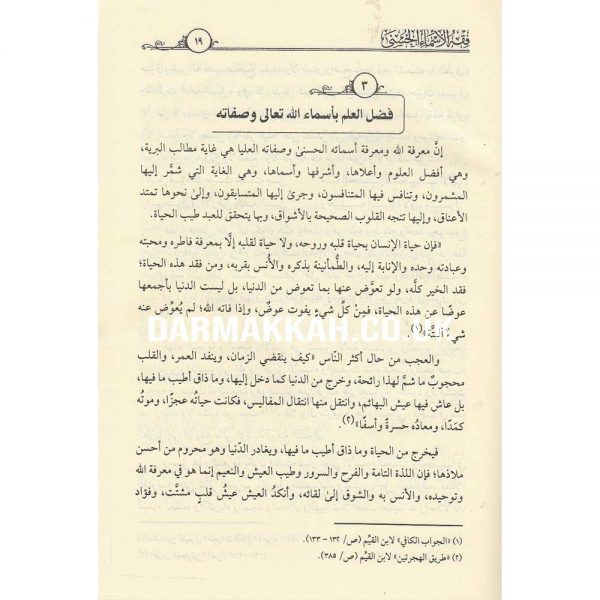 فقه الأسماء الحسنى
١٩
٣
فضل العلم بأسماء الله تعالى وصفاته
إنَّ معرفة الله ومعرفة أسمائه الحسنىٰ وصفاته العليا هي غاية مطالب البرية،
وهي أفضل العلوم وأعلاها، وأشرفها وأسماها، وهي الغاية التي شمَّر إليها
المشمرون، وتنافس فيها المتنافسون، وجرىٰ إليها المتسابقون، وإلىٰ نحوها تمتد
الأعناق، وإليها تتجه القلوب الصحيحة بالأشواق، وبها يتحقق للعبد طيب الحياة.
«فإن حياة الإنسان بحياة قلبه وروحه، ولا حياة لقلبه إلَّا بمعرفة فاطره ومحبته
وعبادته وحده والإنابة إليه، والطُّمأنينة بذكره والأُنس بقربه، ومن فقد هذه الحياة؛
فقد الخير كلَّه، ولو تعوَّض عنها بما تعوض من الدنيا، بل ليست الدنيا بأجمعها
عوضًا عن هذه الحياة، فمِنْ كلِّ شيءٍ يفوت عوضٌ، وإذا فاته الله؛ لم يُعوِّض عنه
شيءٌ ألبتَّة»(١).
DARMAKKAH.CO.UK
والعجب من حال أكثر النَّاس «كيف ينقضي الزمان، وينفد العمر، والقلب
محجوبٌ ما شمَّ لهذا رائحة، وخرج من الدنيا كما دخل إليها، وما ذاق أطيب ما فيها،
بل عاش فيها عيش البهائم، وانتقل منها انتقال المفاليس، فكانت حياتُه عجزًا، وموتُه
كمَدًا، ومعادُه حسرةً وأسفًا»(٢).
فيخرج من الحياة وما ذاق أطيب ما فيها، ويغادر الدُّنيا وهو محروم من أحسن
ملاذها؛ فإن اللذة التامة والفرح والسرور وطيب العيش والنعيم إنما هو في معرفة الله
وتوحيده، والأنس به والشوق إلىٰ لقائه، وأنكدُ العيش عيشُ قلبٍ مشتَّت، وفؤاد
(١) «الجواب الكافي» لابن القيِّم (ص/ ١٣٢ - ١٣٣).
(٢) «طريق الهجرتين» لابن القيِّم (ص/ ٣٨٥).